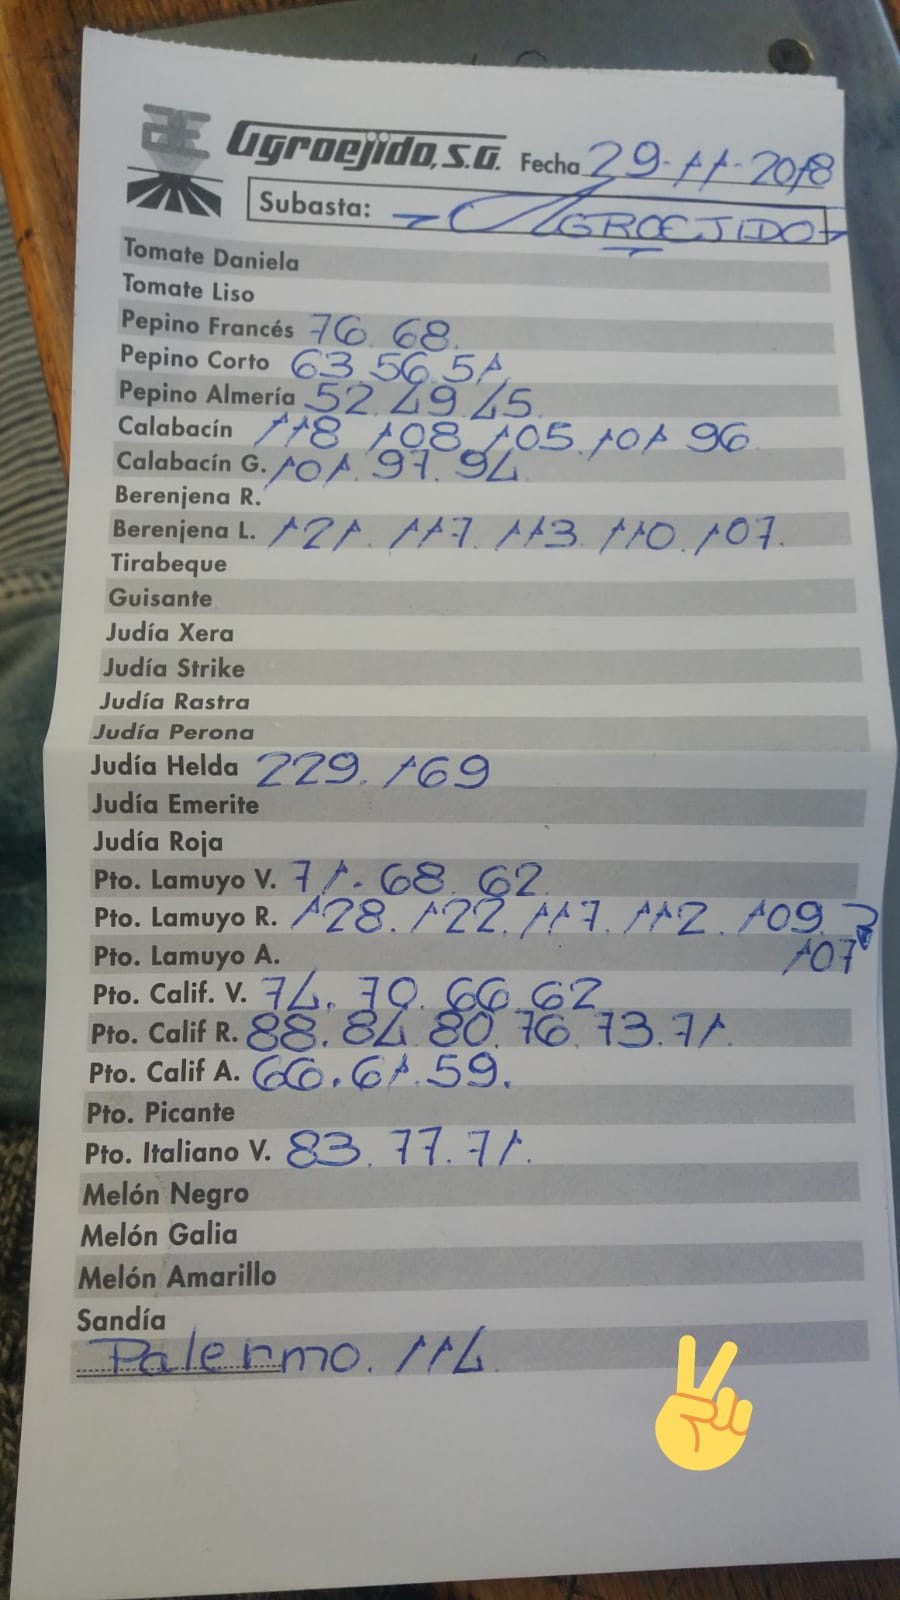 Agroejido, S.A. Fecha 29-11-2018
Subasta: - AGROEJIDO -
Tomate Daniela
Tomate Liso
Pepino Francés 76. 68.
Pepino Corto 63. 56. 51.
Pepino Almería 52. 49. 45.
Calabacín 118. 108. 105. 101. 96
Calabacín G. 101. 97. 94
Berenjena R.
Berenjena L. 121. 117. 113. 110. 107.
Tirabeque
Guisante
Judía Xera
Judía Strike
Judía Rastra
Judía Perona
Judía Helda 229. 169
Judía Emerite
Judía Roja
Pto. Lamuyo V. 71. 68. 62.
Pto. Lamuyo R. 128. 122. 117. 112. 109.
107
Pto. Lamuyo A.
Pto. Calif. V. 74. 70. 66. 62
Pto. Calif R. 88. 84. 80. 76. 73. 71.
Pto. Calif A. 66. 61. 59.
Pto. Picante
Pto. Italiano V. 83. 77. 71.
Melón Negro
Melón Galia
Melón Amarillo
Sandía
Palermo. 114